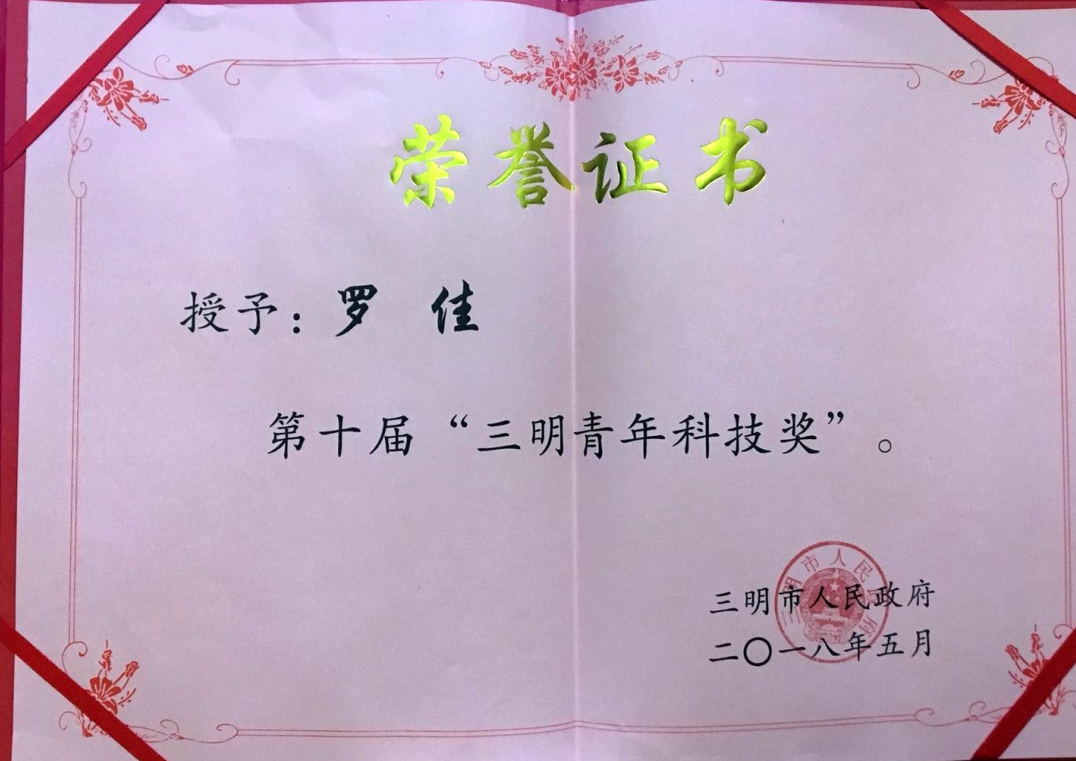 荣誉证书
授予：罗 佳
第十届“三明青年科技奖”。
三明市人民政府
二〇一八年五月
三明市人民政府